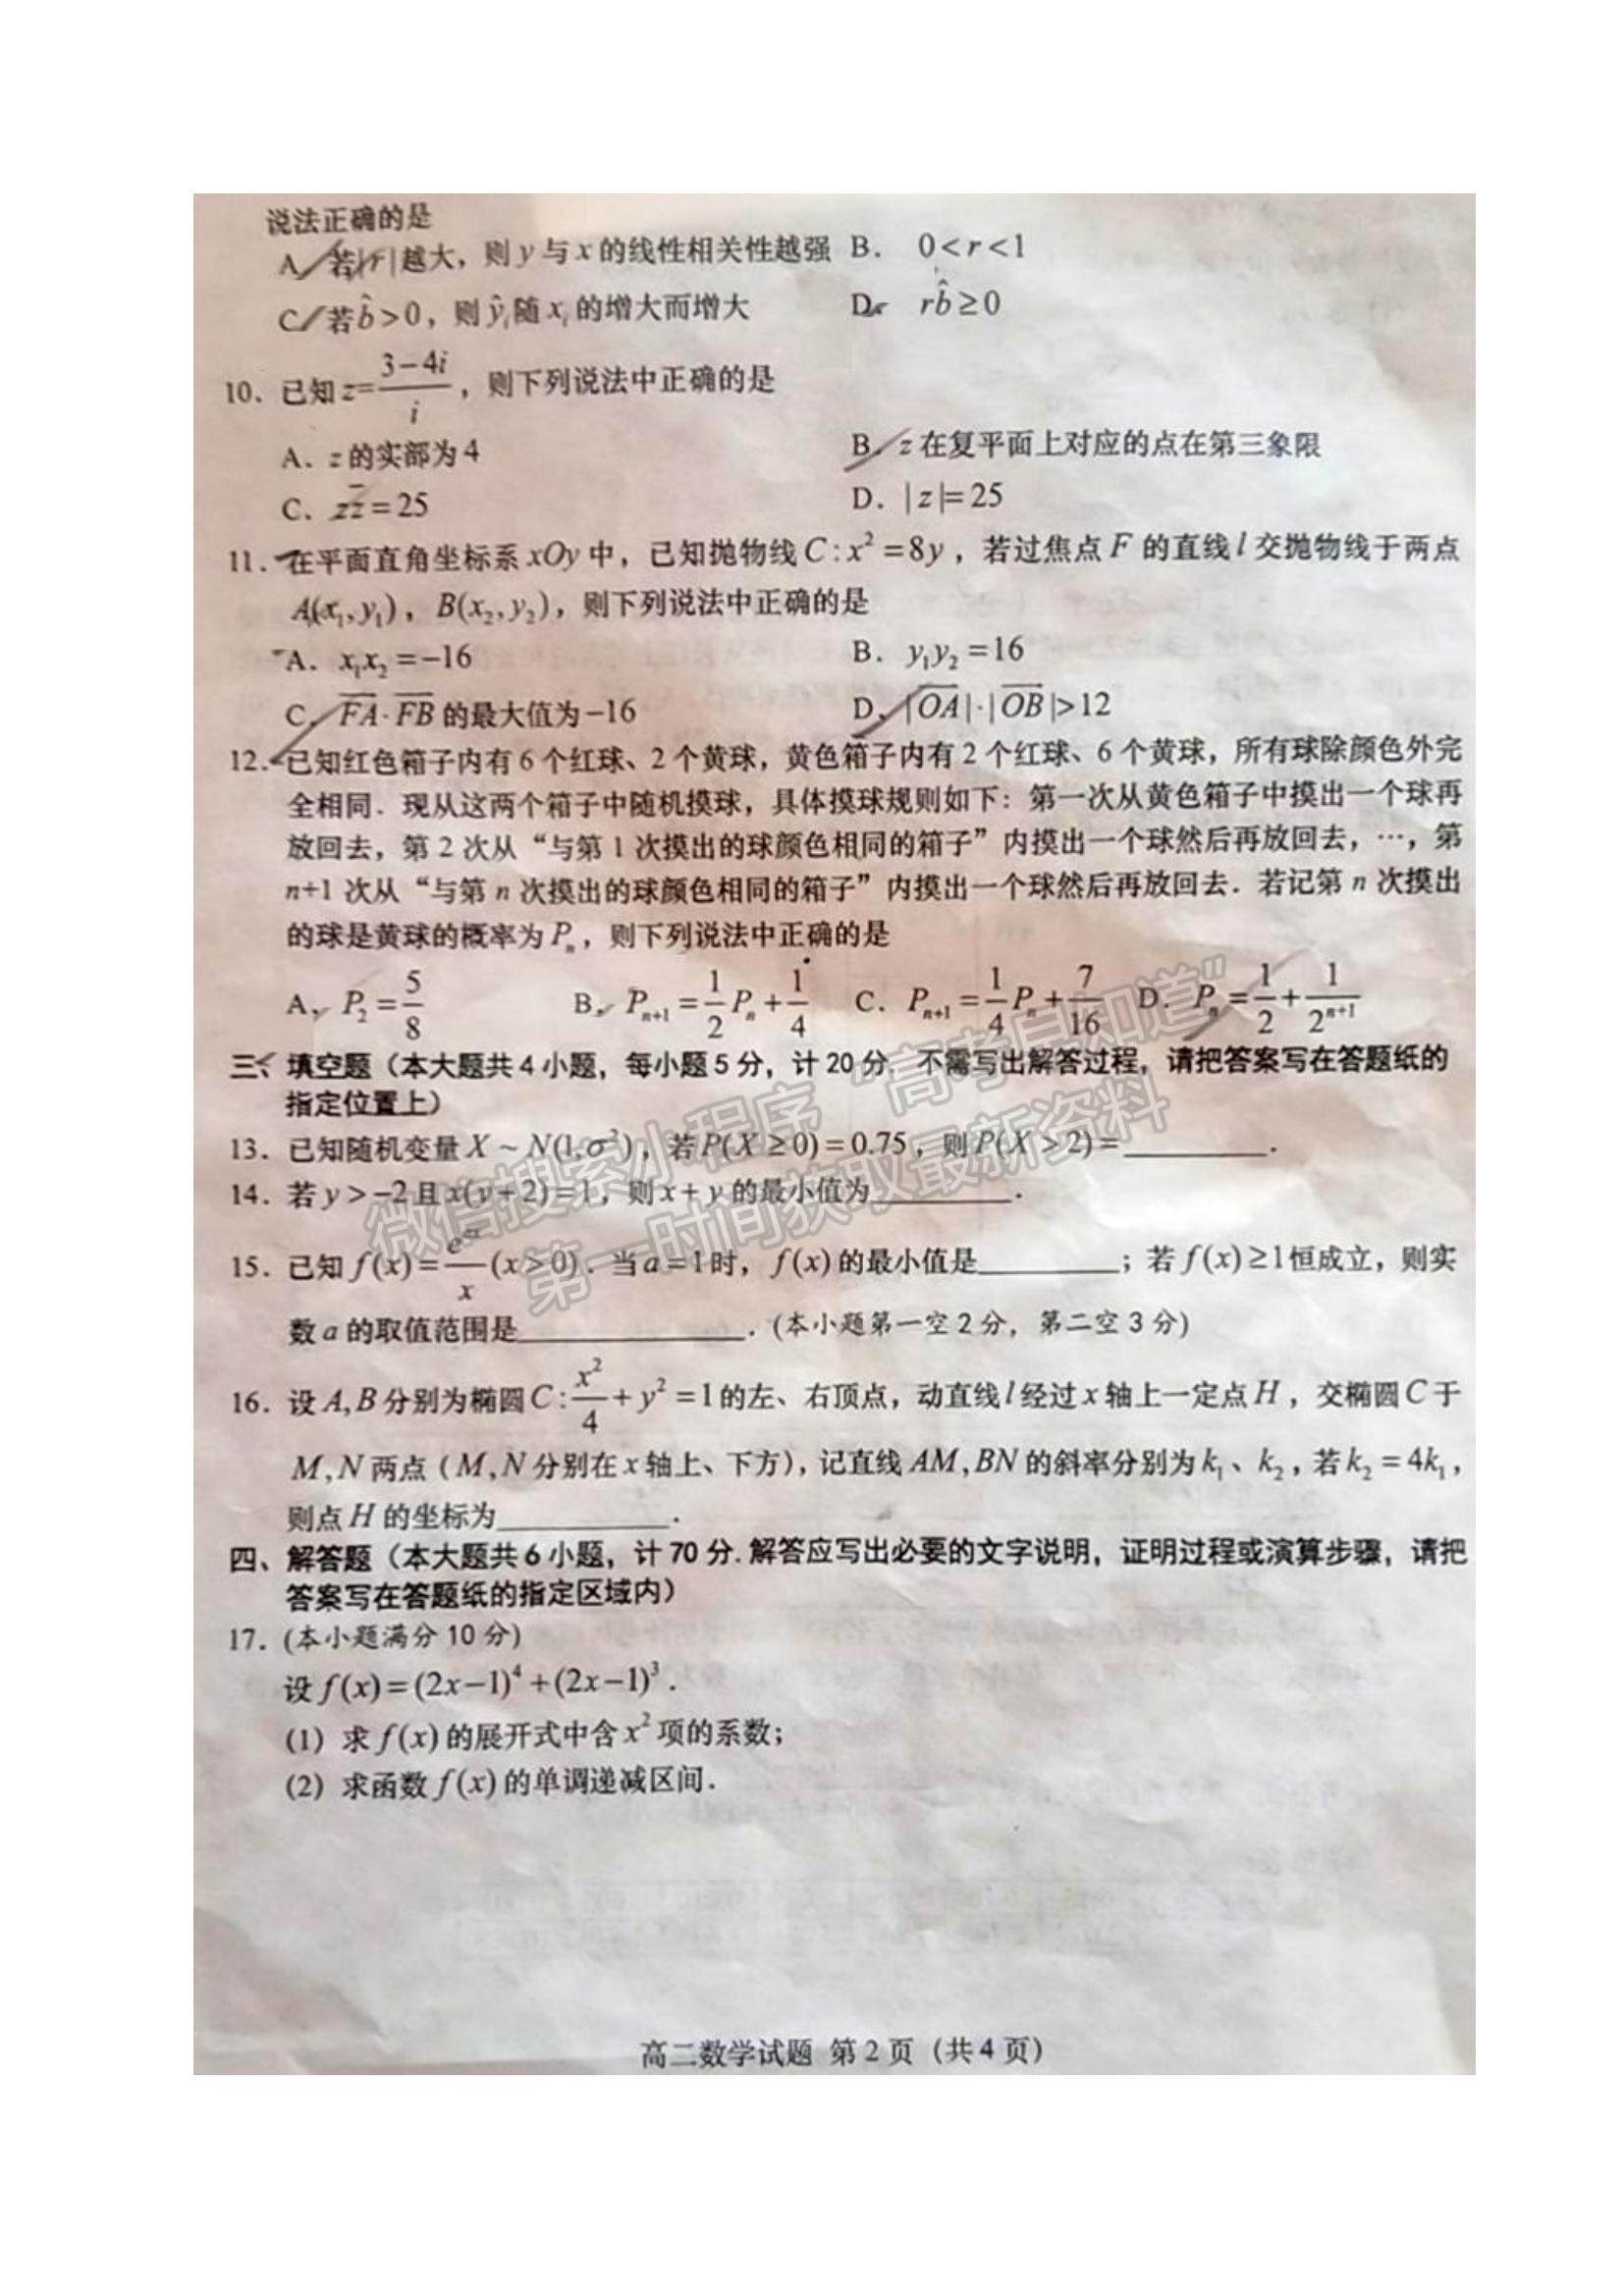 说法正确的是
A. 若|r|越大，则 y 与 x 的线性相关性越强 B. 0<r<1
C. 若b̂>0，则ŷᵢ随xᵢ的增大而增大 D. rb̂≥0
10. 已知 z=(3-4i)/i，则下列说法中正确的是
A. z的实部为4 B. z在复平面上对应的点在第三象限
C. zz̄=25 D. |z|=25
11. 在平面直角坐标系xOy中，已知抛物线C:x²=8y，若过焦点F的直线l交抛物线于两点
A(x₁,y₁)，B(x₂,y₂)，则下列说法中正确的是
A. x₁x₂=-16 B. y₁y₂=16
C. FA·FB的最大值为-16 D. |OA|·|OB|>12
12. 已知红色箱子内有6个红球、2个黄球，黄色箱子内有2个红球、6个黄球，所有球除颜色外完
全相同．现从这两个箱子中随机摸球，具体摸球规则如下：第一次从黄色箱子中摸出一个球再
放回去，第2次从“与第1次摸出的球颜色相同的箱子”内摸出一个球然后再放回去，…，第
n+1次从“与第n次摸出的球颜色相同的箱子”内摸出一个球然后再放回去．若记第n次摸出
的球是黄球的概率为Pₙ，则下列说法中正确的是
A. P₂=5/8 B. Pₙ₊₁=1/2Pₙ+1/4 C. Pₙ₊₁=1/4Pₙ+7/16 D. Pₙ=1/2+1/2ⁿ⁺¹
三、填空题（本大题共4小题，每小题5分，计20分．不需写出解答过程，请把答案写在答题纸的
指定位置上）
13. 已知随机变量X~N(1,σ²)，若P(X≥0)=0.75，则P(X>2)=______.
14. 若y>-2且x(y+2)=1，则x+y的最小值为______.
15. 已知f(x)=eᵃˣ/x(x>0)．当a=1时，f(x)的最小值是______；若f(x)≥1恒成立，则实
数a的取值范围是______．(本小题第一空2分，第二空3分)
16. 设A,B分别为椭圆C:x²/4+y²=1的左、右顶点，动直线l经过x轴上一定点H，交椭圆C于
M,N两点（M,N分别在x轴上、下方），记直线AM,BN的斜率分别为k₁、k₂，若k₂=4k₁，
则点H的坐标为______.
四、解答题（本大题共6小题，计70分.解答应写出必要的文字说明，证明过程或演算步骤，请把
答案写在答题纸的指定区域内）
17. (本小题满分10分)
设f(x)=(2x-1)⁴+(2x-1)³.
(1) 求f(x)的展开式中含x²项的系数；
(2) 求函数f(x)的单调递减区间.
高二数学试题 第2页（共4页）
微信搜索小程序“高考早知道”
第一时间获取最新资料